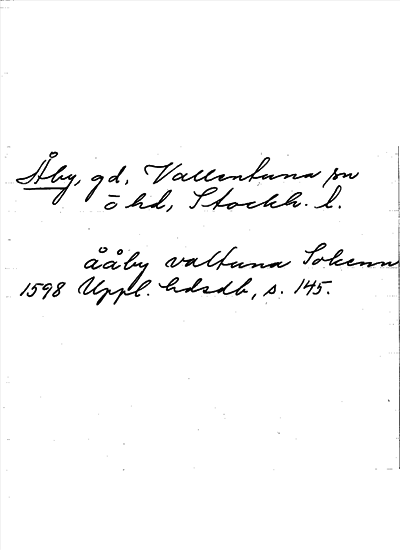 Åby, gd, Vallentuna sn
ō hd, Stockh. l.
ååby valtuna Sokenn
1598 Uppl. hdsdb, s. 145.